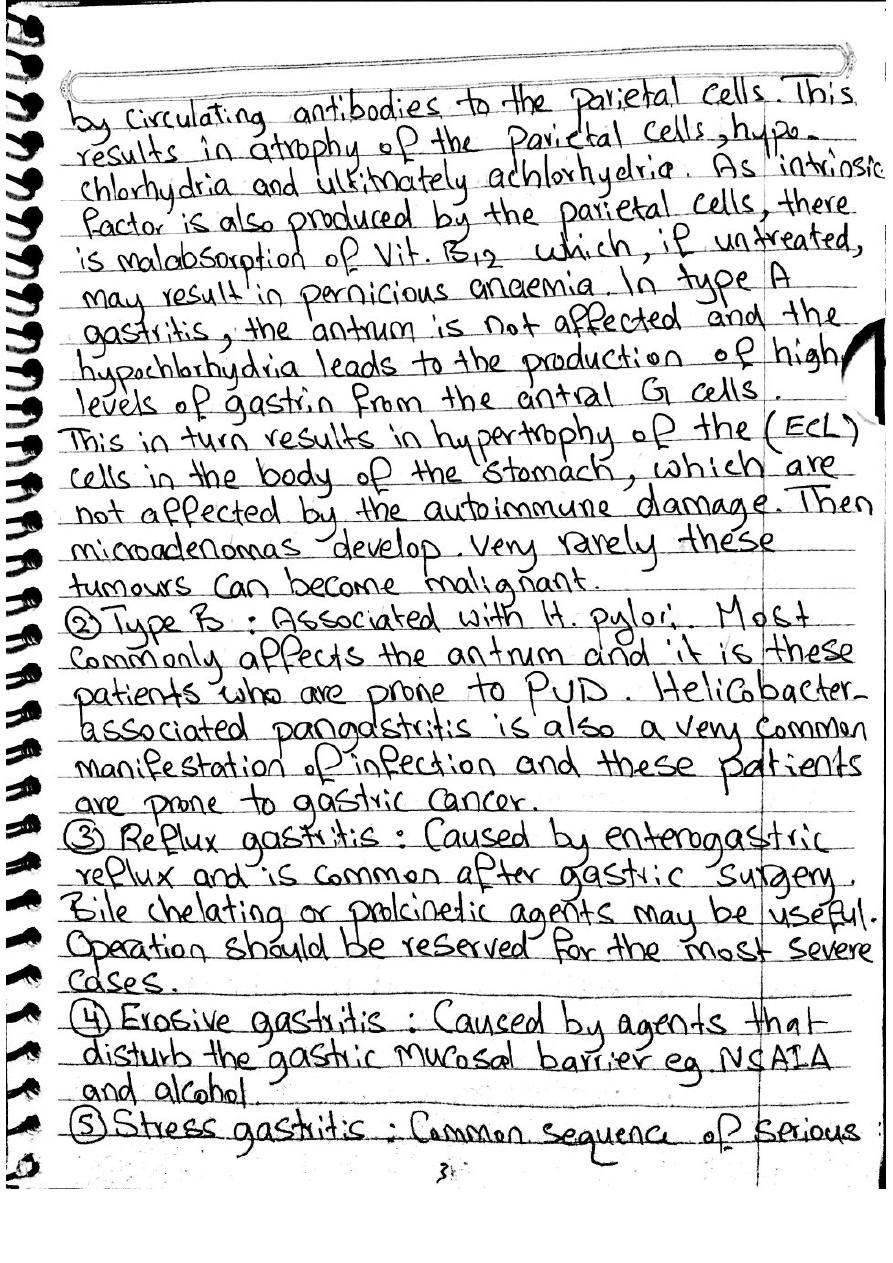 by circulating antibodies to the parietal cells. This
results in atrophy of the parietal cells, hypo-
chlorhydria and ultimately achlorhydria. As intrinsic
factor is also produced by the parietal cells, there
is malabsorption of Vit. B12 which, if untreated,
may result in pernicious anaemia. In type A
gastritis, the antrum is not affected and the
hypochlorhydria leads to the production of high
levels of gastrin from the antral G cells.
This in turn results in hypertrophy of the (ECL)
cells in the body of the stomach, which are
not affected by the autoimmune damage. Then
microadenomas develop. Very rarely these
tumours can become malignant.
② Type B : Associated with H. pylori. Most
commonly affects the antrum and it is these
patients who are prone to PUD. Helicobacter-
associated pangastritis is also a very common
manifestation of infection and these patients
are prone to gastric cancer.
③ Reflux gastritis : Caused by enterogastric
reflux and is common after gastric surgery.
Bile chelating or prokinetic agents may be useful.
Operation should be reserved for the most severe
cases.
④ Erosive gastritis : Caused by agents that
disturb the gastric mucosal barrier eg. NSAIA
and alcohol.
⑤ Stress gastritis : Common sequence of serious
3